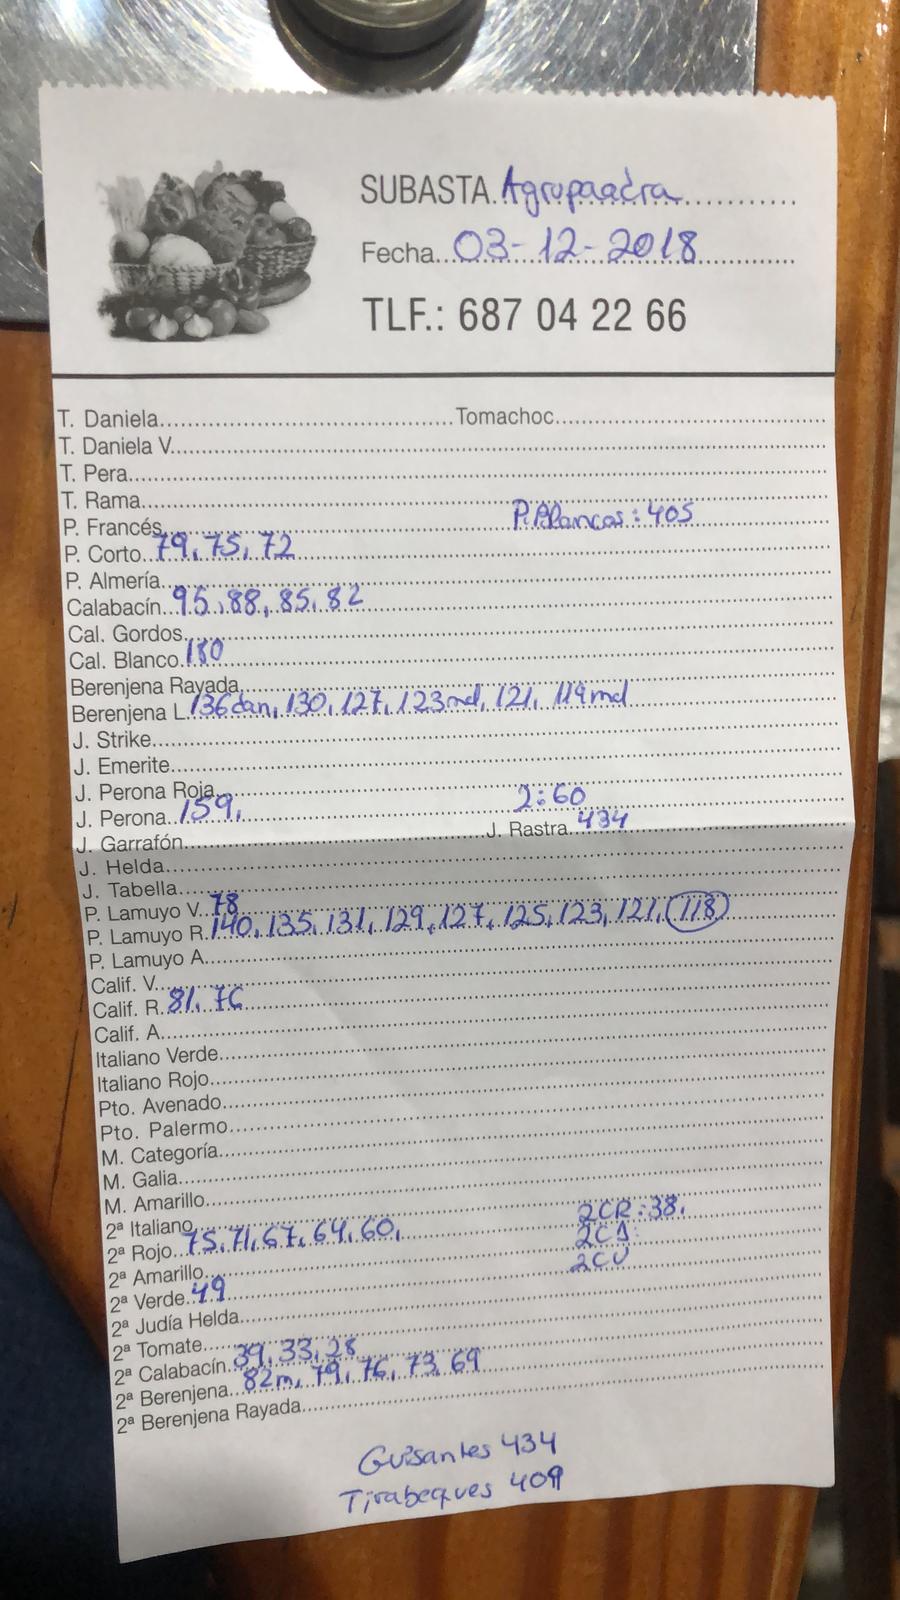 SUBASTA Agrupaadra
Fecha 03-12-2018
TLF.: 687 04 22 66
T. Daniela Tomachoc
T. Daniela V.
T. Pera
T. Rama
P. Francés P. Blancos: 405
P. Corto 79, 75, 72
P. Almería
Calabacín 95, 88, 85, 82
Cal. Gordos
Cal. Blanco 180
Berenjena Rayada
Berenjena L. 136dan, 130, 127, 123md, 121, 119md
J. Strike
J. Emerite
J. Perona Roja 2: 60
J. Perona 159,
J. Garrafón J. Rastra 434
J. Helda
J. Tabella
P. Lamuyo V. 78
P. Lamuyo R. 140, 135, 131, 129, 127, 125, 123, 121, 118
P. Lamuyo A.
Calif. V.
Calif. R. 81, 76
Calif. A.
Italiano Verde
Italiano Rojo
Pto. Avenado
Pto. Palermo
M. Categoría
M. Galia
M. Amarillo
2ª Italiano 2CR: 38,
2ª Rojo 75, 71, 67, 64, 60, 2CA:
2ª Amarillo 2CV
2ª Verde 49
2ª Judía Helda
2ª Tomate
2ª Calabacín 39, 33, 28
2ª Berenjena 82m, 79, 76, 73, 69
2ª Berenjena Rayada
Guisantes 434
Tirabeques 409